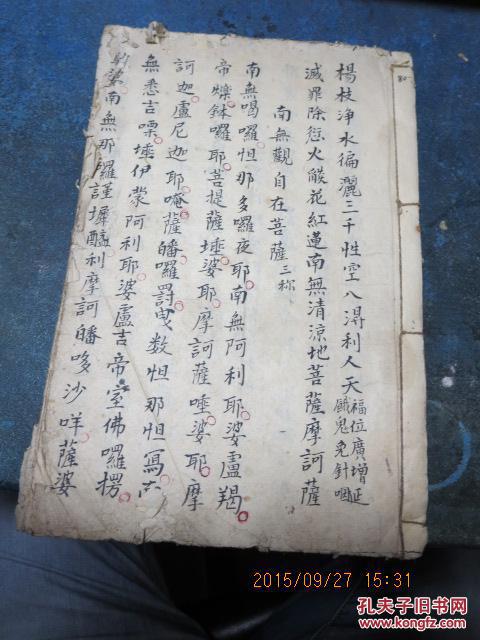 楊枝净水徧灑三千性空八淂利人天福位廣增延餓鬼免針咽
滅罪除愆火燄花紅蓮南無清涼地菩薩摩訶薩
南無觀自在菩薩三称
南無喝囉怛那多囉夜耶南無阿利耶婆盧羯
帝爍鉢囉耶菩提薩埵婆耶摩訶薩埵婆耶摩
訶迦盧尼迦耶唵薩皤囉罰曳数怛那怛寫
無悉吉嘌埵伊蒙阿利耶婆盧吉帝室佛囉楞
婆南無那囉謹墀醯利摩訶皤哆沙咩薩婆
80
2015/09/27 15:31
孔夫子旧书网
www.kongfz.com